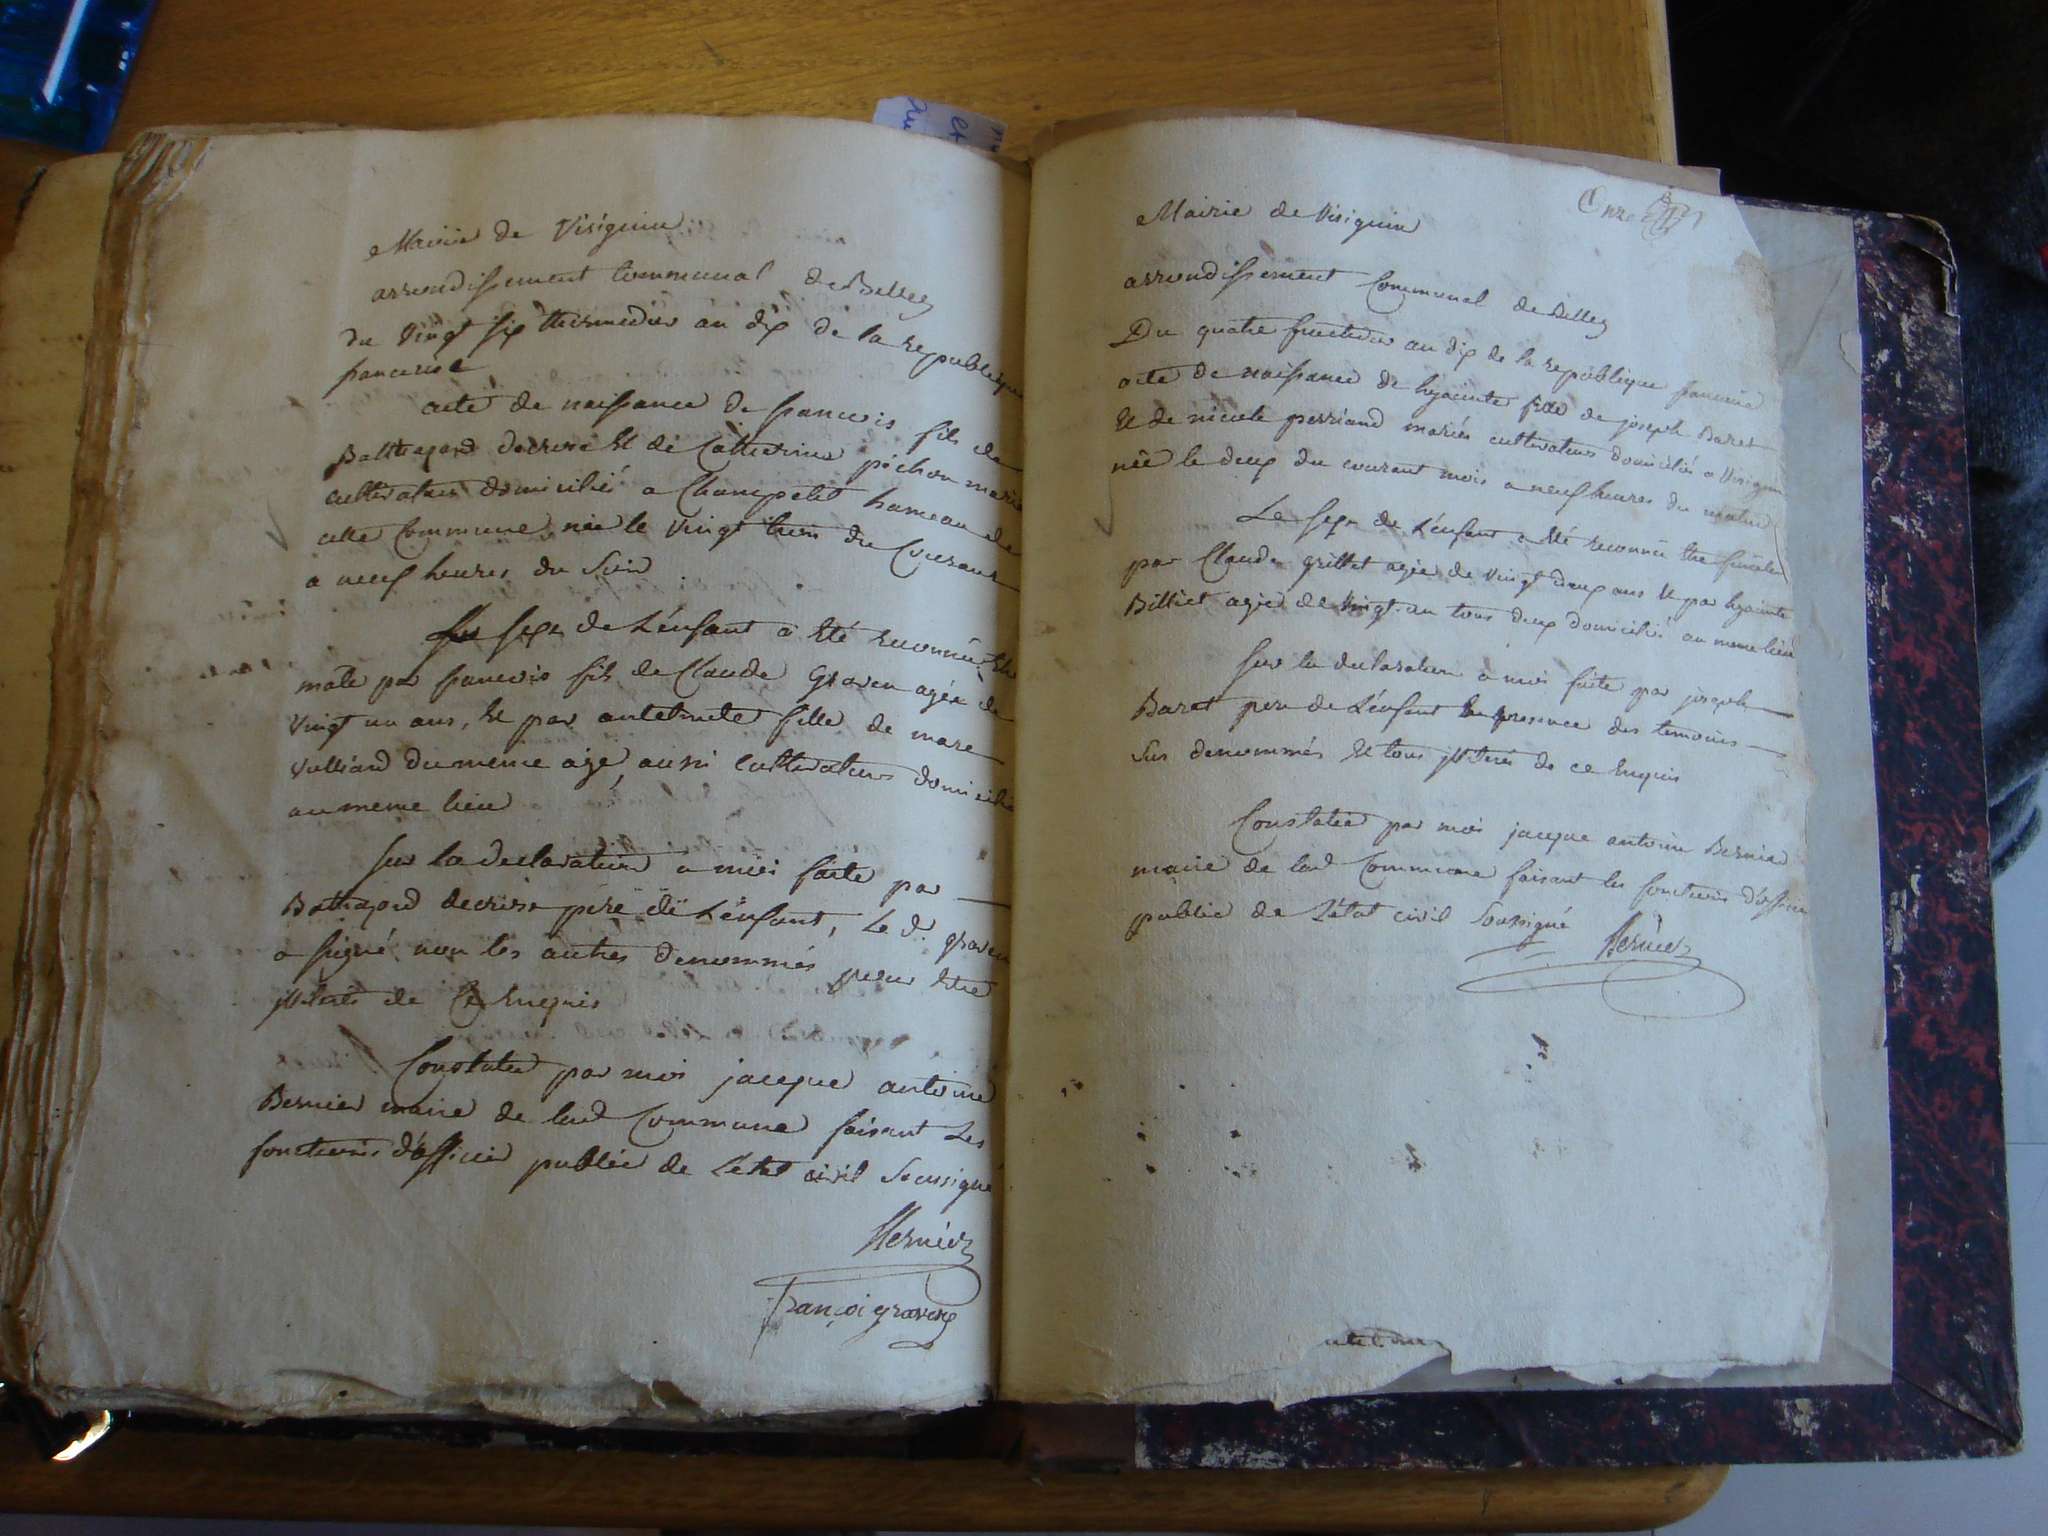 Mairie de Virignin
arrondissement Communal de Belley
du Vingt six thermidor an dix de la republique
francaise
acte de naissance de francois fils de
Balthazard decrose Et de Catherine pichon mariés
cultivateurs domiciliés a Champetit hameau de
cette Commune née le Vingt trois du Courant
a neuf heures du Soir
Le sexe de L'enfant a Eté reconnu Etre
male par francois fils de Claude Graven agée de
Vingt un ans, Et par antelmete fille de marc
Vulliard du meme age, aussi Cultivateurs domicilié
au meme lieu
Sur la declaration a moi faite par
Bathazard decrose pere de L'enfant, Le d. graven
a signé non les autres denommés pour Etre
illiterés de Ce Enquis
Constatée par moi jacque antoine
Bernier maire de lad Commune faisant Les
fonctions d'officier public de L'état civil Soussigné
Bernier
françoi graven
Onze
Mairie de Virignin
arrondissement Communal de Belley
Du quatre fructidor an dix de la republique francaise
acte de naissance de hyacinte fille de joseph Baret
Et de nicole perriand mariés cultivateurs domiciliés a Virignin
née le deux du courant mois a neuf heures du matin
Le sexe de L'enfant a Eté reconnu Etre femelle
par Claude grillet agée de Vingt deux ans Et par hyacinte
Billiet agée de Vingt-un tous deux domicilié au meme lieu
Sur la declaration a moi faite par joseph
Baret pere de L'enfant En presence des temoins
Sus denommés Et tous illiterés de ce Enquis
Constatée par moi jacque antoine Bernier
maire de lad Commune faisant les fonctions d'officier
public de L'état civil Soussigné
Bernier